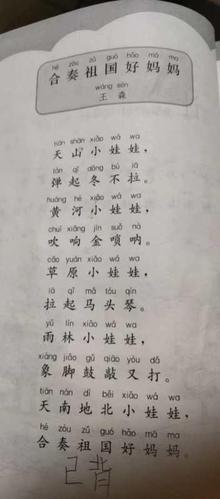 hé zòu zǔ guó hǎo mā ma
合奏祖国好妈妈
wáng sēn
王森
tiān shān xiǎo wá wa
天山小娃娃，
tán qǐ dōng bù lā
弹起冬不拉。
huáng hé xiǎo wá wa
黄河小娃娃，
chuī xiǎng jīn suǒ nà
吹响金唢呐。
cǎo yuán xiǎo wá wa
草原小娃娃，
lā qǐ mǎ tóu qín
拉起马头琴。
yǔ lín xiǎo wá wa
雨林小娃娃，
xiàng jiǎo gǔ qiāo yòu dǎ
象脚鼓敲又打。
tiān nán dì běi xiǎo wá wa
天南地北小娃娃，
hé zòu zǔ guó hǎo mā ma
合奏祖国好妈妈。
已背